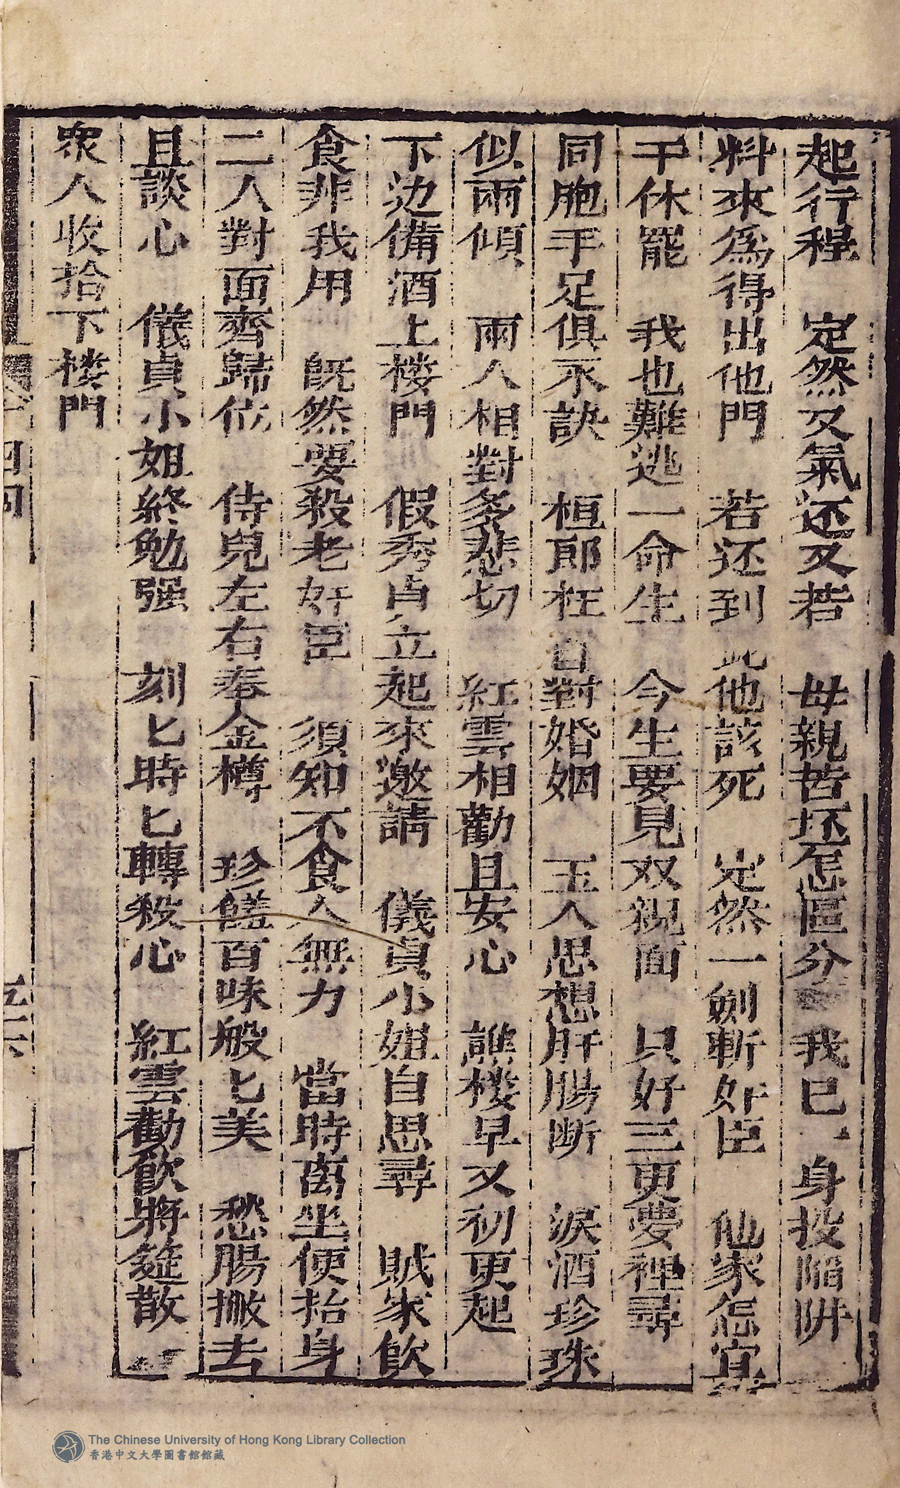 起行程　定然又氣还又若　母親苦坯怎區分　我已一身投陷阱
料來為得出他門　若还到此他該死　定然一劍斬奸臣　他家怎宜
干休罷　我也難逃一命生　今生要見双親面　只好三更夢裡尋
同胞手足俱永訣　桓郎枉自對婚姻　玉人思想肝腸断　淚洒珍珠
似兩傾　兩人相對多悲切　紅雲相勸且安心　譙楼早又初更起
下边備酒上楼門　假秀貞立起來邀請　儀貞小姐自思尋　賊家飲
食非我用　既然要殺老奸臣　須知不食人無力　當時离坐便抬身
二人對面齊歸位　侍兒左右奉金樽　珍饈百味般匕美　愁腸撇去
且談心　儀貞小姐終勉强　刻匕時匕轉殺心　紅雲勸飲將筵散
衆人收拾下楼門
四囬
The Chinese University of Hong Kong Library Collection
香港中文大學圖書館館藏